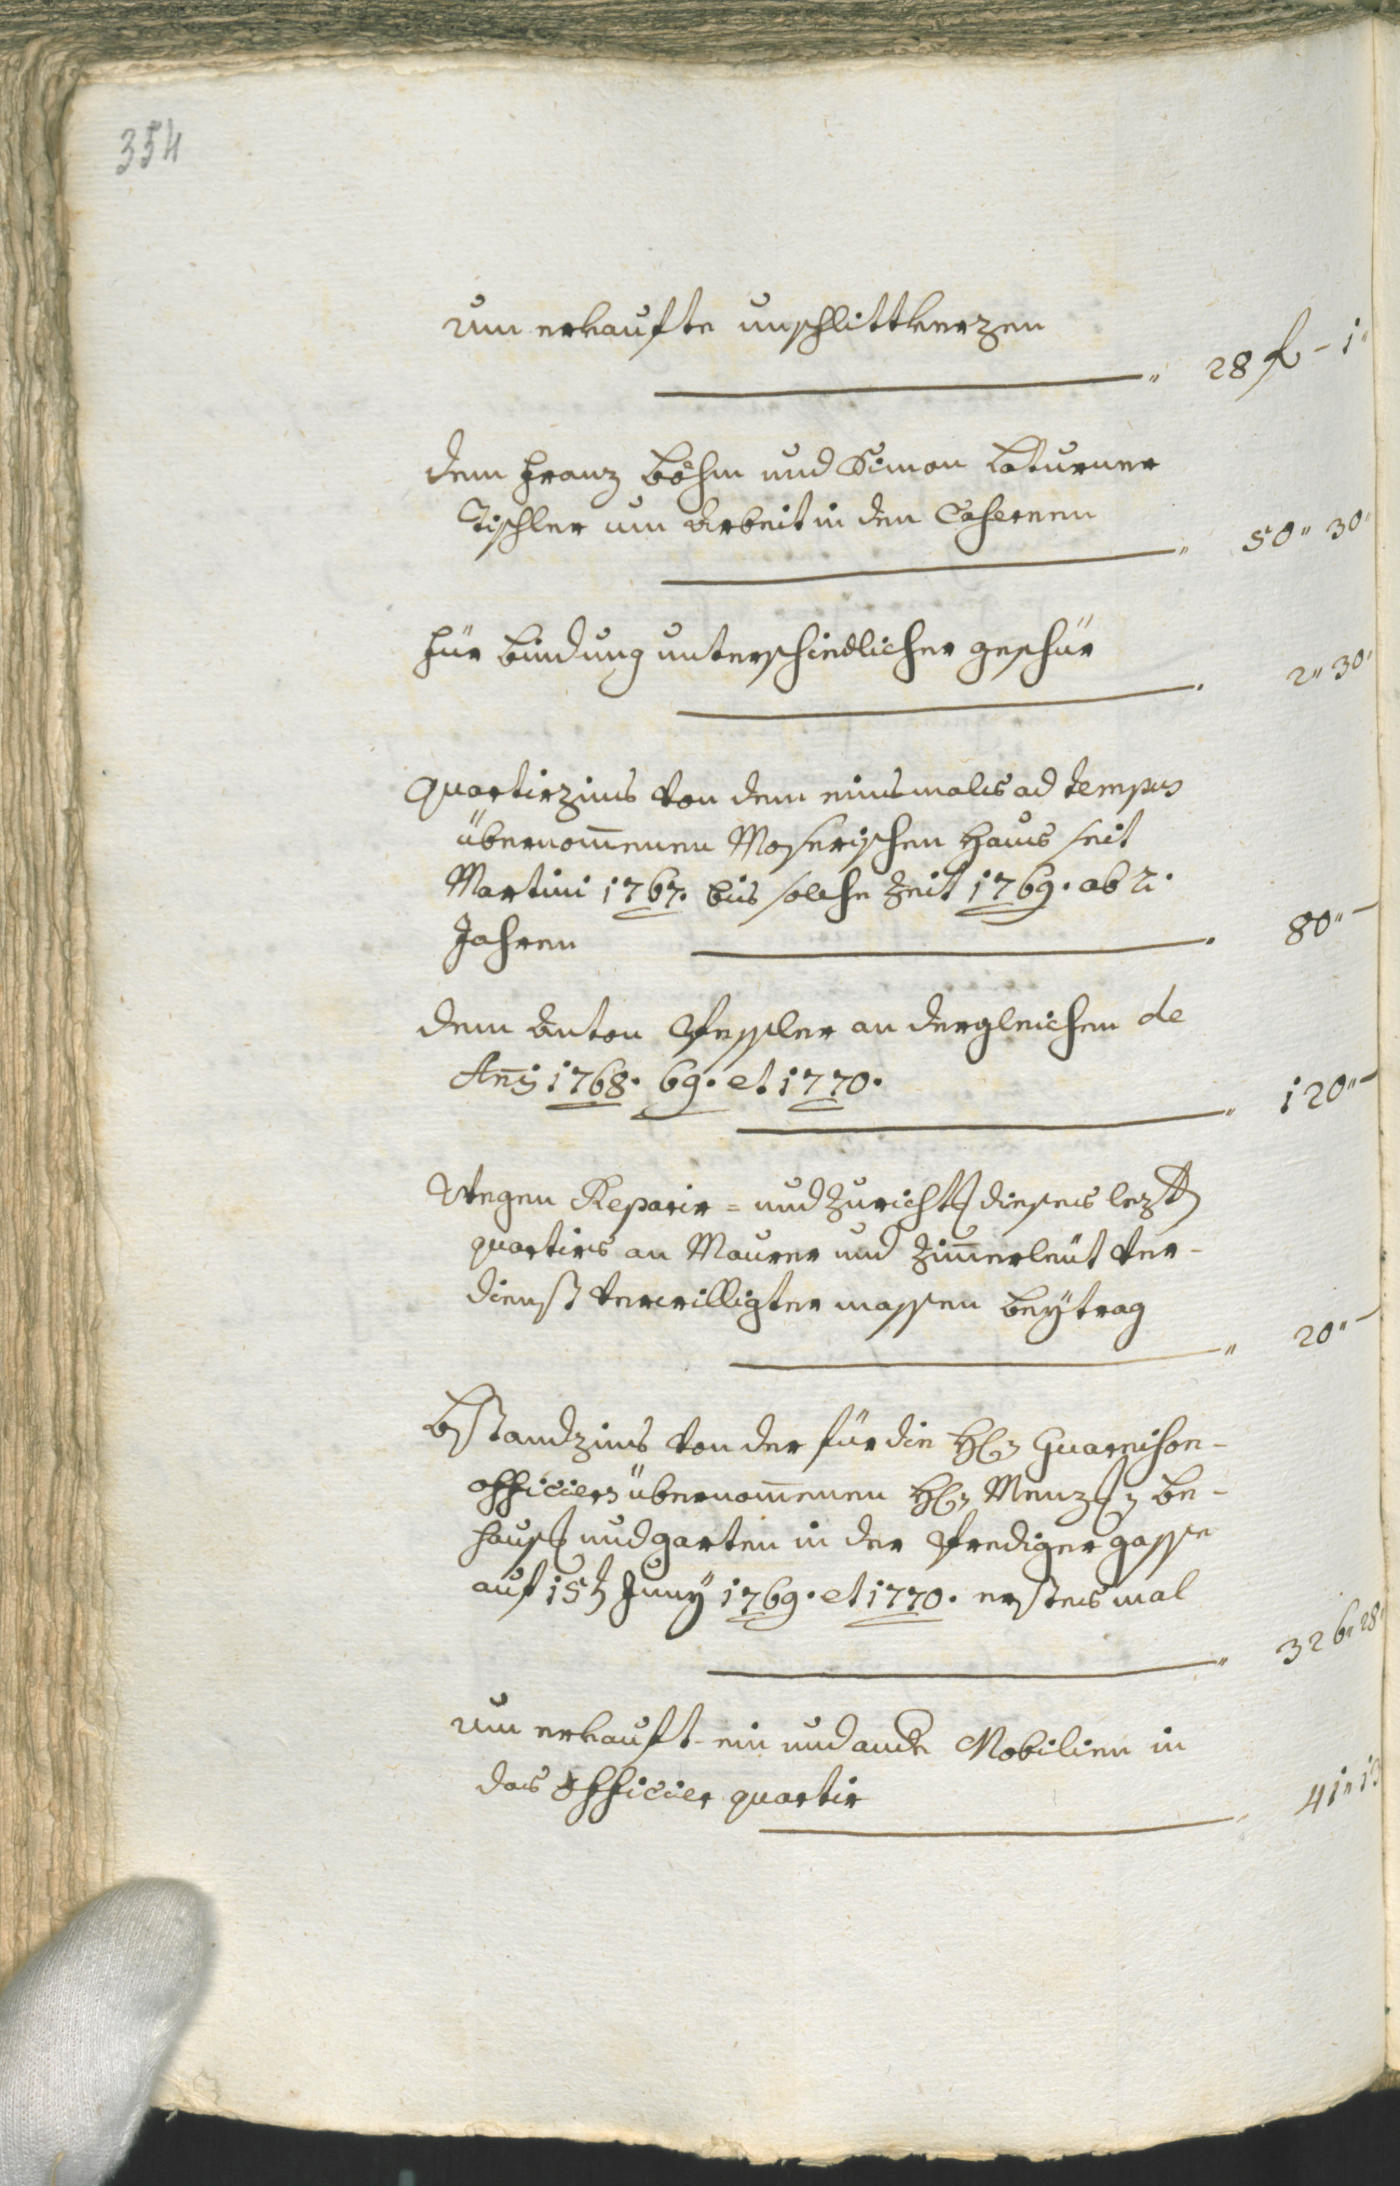 354
Um erkaufte unschlittkerzen
" 28 f - 1"
dem Franz Böhm und Simon Laturner
Tischler um Arbeit in den Casernen
" 50" 30"
für bindung unterschiedlicher geschür
2" 30"
Quartierzins von dem einsmals ad tempus
übernom̅enen Moserischen Haus seit
Martini 1767. bis solche Zeit 1769. ab 2.
Jahren 80" -
dem Anton Pessler an dergleichen de
An̅is 1768. 69. et 1770.
" 120" -
Wegen Reparir- und Zuricht dieses lezt
quartirs an Maurer und Zim̅erleut ver-
dienst verwilligter massen beytrag
" 20" -
Bstandzins von der für die H Guarnison-
officiers übernom̅enen H Menz be-
haus und garten in der Predigergasse
auf 15 Juny 1769. et 1770. erstes mal
" 326" 28"
Um erkauft- ein und and Mobilien in
das officier quartir
41" 13